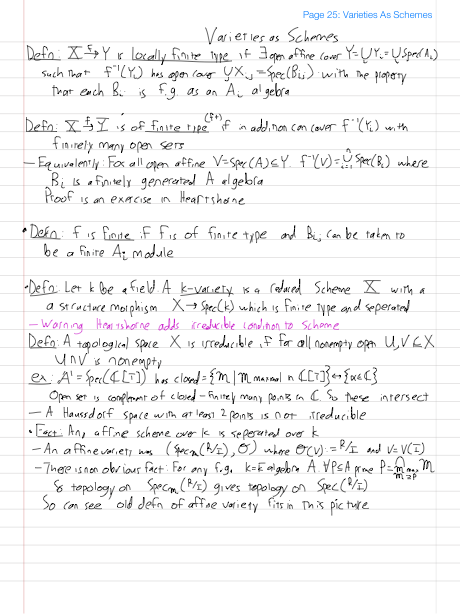 Page 25: Varieties As Schemes
Varieties as Schemes
Defn: X →f Y is locally finite type if ∃ open affine cover Y=∪Yi=∪Spec(Ai)
such that f⁻¹(Yi) has open cover ∪Xij=Spec(Bij) with the property
that each Bij is f.g. as an Ai algebra
Defn: X →f Y is of finite type (ft) if in addition can cover f⁻¹(Yi) with
finitely many open sets
- Equivalently: For all open affine V=Spec(A)⊆Y. f⁻¹(V)=∪ⁿᵢ₌₁ Spec(Bi) where
Bi is a finitely generated A algebra
Proof is an exercise in Heartshorne
• Defn: f is finite if f is of finite type and Bij can be taken to
be a finite Ai module
• Defn: Let k be a field A k-variety is a reduced Scheme X with a
a structure morphism X→Spec(k) which is finite type and seperated
- Warning Heartshorne adds irreducible condition to Scheme
Defn: A topological space X is irreducible if for all nonempty open U,V⊆X
U∩V is nonempty
ex: A¹=Spec(ℂ[T]) has closed={m | m maximal in ℂ[T]}↔{α∈ℂ}
Open set is complement of closed - finitely many points in ℂ. So these intersect
- A Haussdorf space with at least 2 points is not irreducible
• Fact: Any affine scheme over k is seperated over k
- An affine variety was (Specm(R/I), O) where O(V)=R/I and V=V(I)
- There is non obvious fact: For any f.g. k=k̄ algebra A. ∀P≤A prime P=∩ m max m≥P m
& topology on Specm(R/I) gives topology on Spec(R/I)
So can see old defn of affine variety fits in this picture